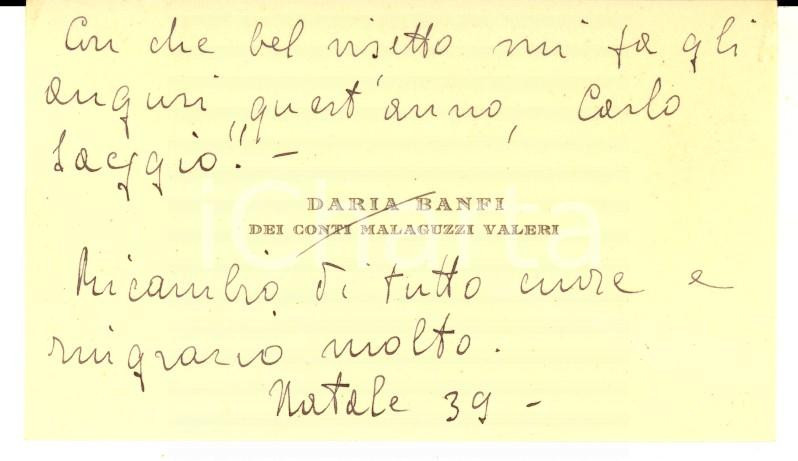 Con che bel visetto mi fa gli
auguri quest'anno, Carlo
saggio". -
DARIA BANFI
DEI CONTI MALAGUZZI VALERI
Ricambio di tutto cuore e
ringrazio molto.
Natale 39 -
iCharta